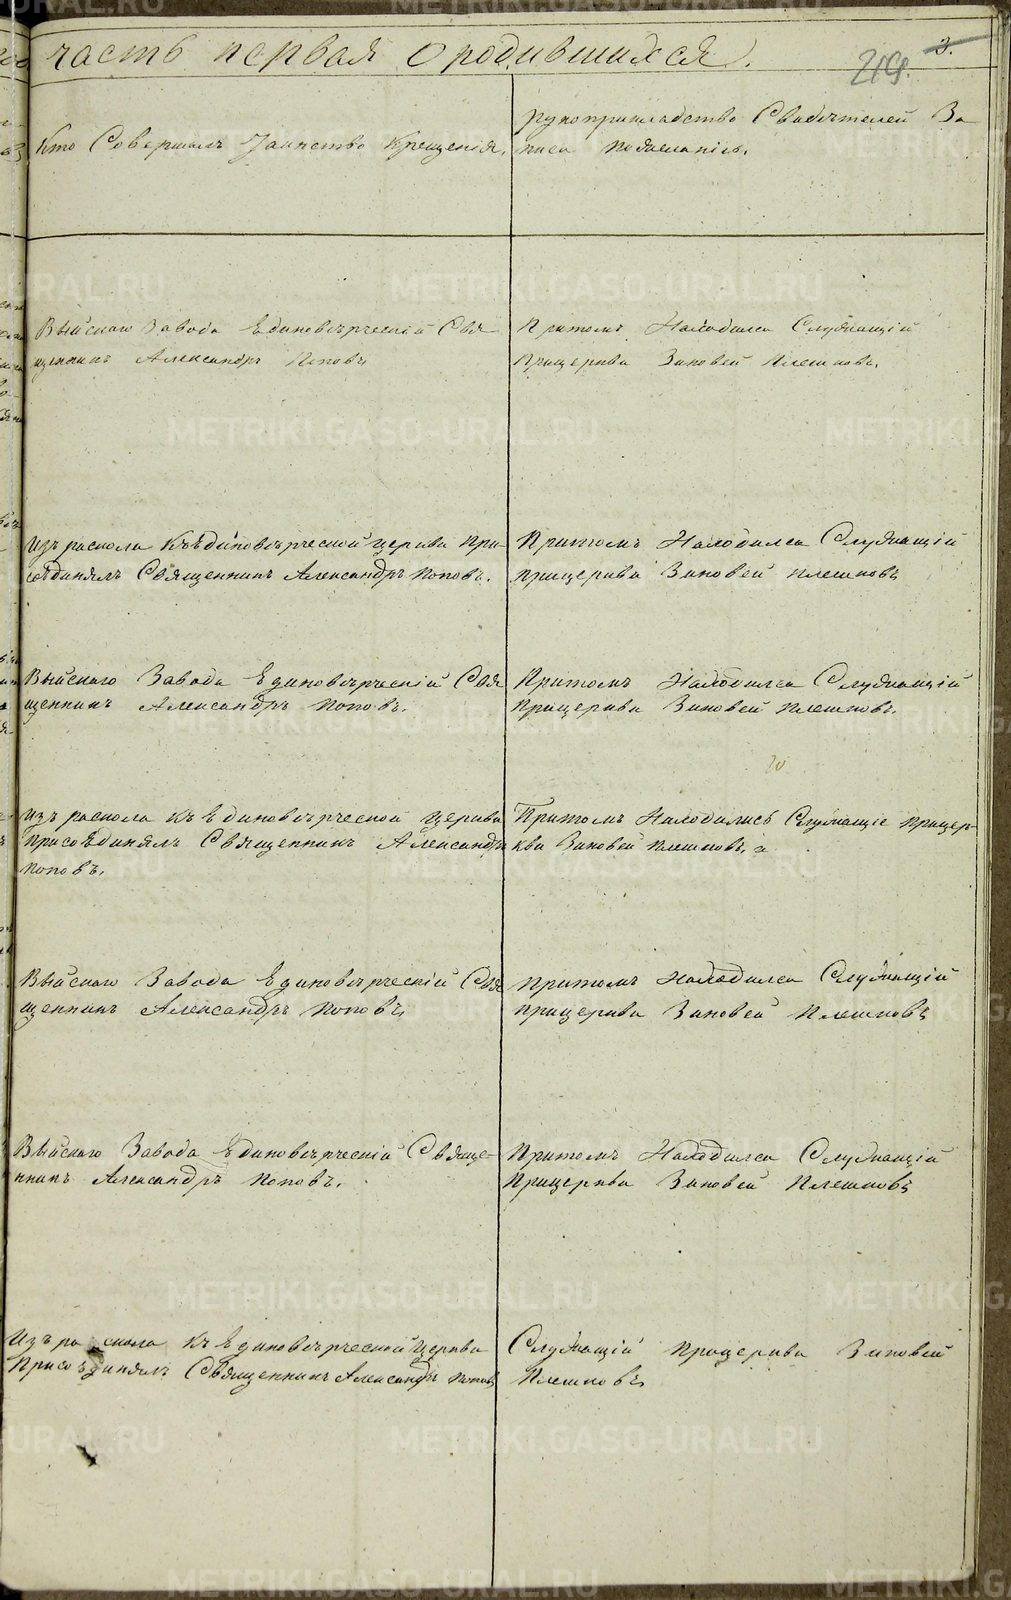 часть первая о родившихся.
219. 3.
Кто Совершалъ Таинство Крещенія.
рукоприкладство Свидѣтелей За
писи пожеланію.
Выйскаго Завода Единовѣрческій Свя
щенникъ Александръ Поповъ
Притомъ Находился Служащій
прицеркви Зиновей Плешковъ.
Изъ раскола Къ Единовѣрческой церкви При
соѣдинялъ Священникъ Александръ Поповъ.
Притомъ Находился Служащій
прицеркви Зиновей Плешковъ
Выйскаго Завода Единовѣрческій Свя
щенникъ Александръ Поповъ.
Притомъ Находился Служащій
Прицеркви Зиновей Плешковъ.
Изъ раскола Къ Единовѣрческой Церкви
присоѣдинялъ Священникъ Александръ
Поповъ.
Притомъ Находились Служащіе прицер-
кви Зиновей Плешковъ, а
Выйскаго Завода Единовѣрческій Свя
щенникъ Александръ Поповъ,
притомъ Находился Служащій
прицеркви Зиновей Плешковъ
Выйскаго Завода Единовѣрческій Свяще-
нникъ Александръ Поповъ.
Притомъ Находился Служащій
Прицеркви Зиновей Плешковъ
Изъ раскола Къ Единовѣрческой Церкви
Присоѣдинялъ Священникъ Александръ Поповъ
Служащій прицеркви Зиновей
Плешковъ
METRIKI.GASO-URAL.RU